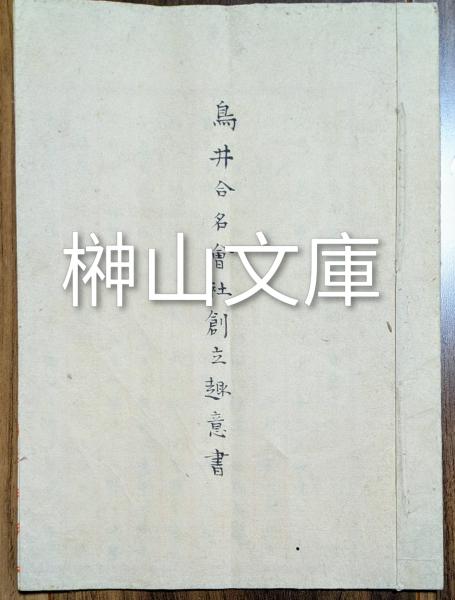 鳥井合名會社創立趣意書
榊山文庫